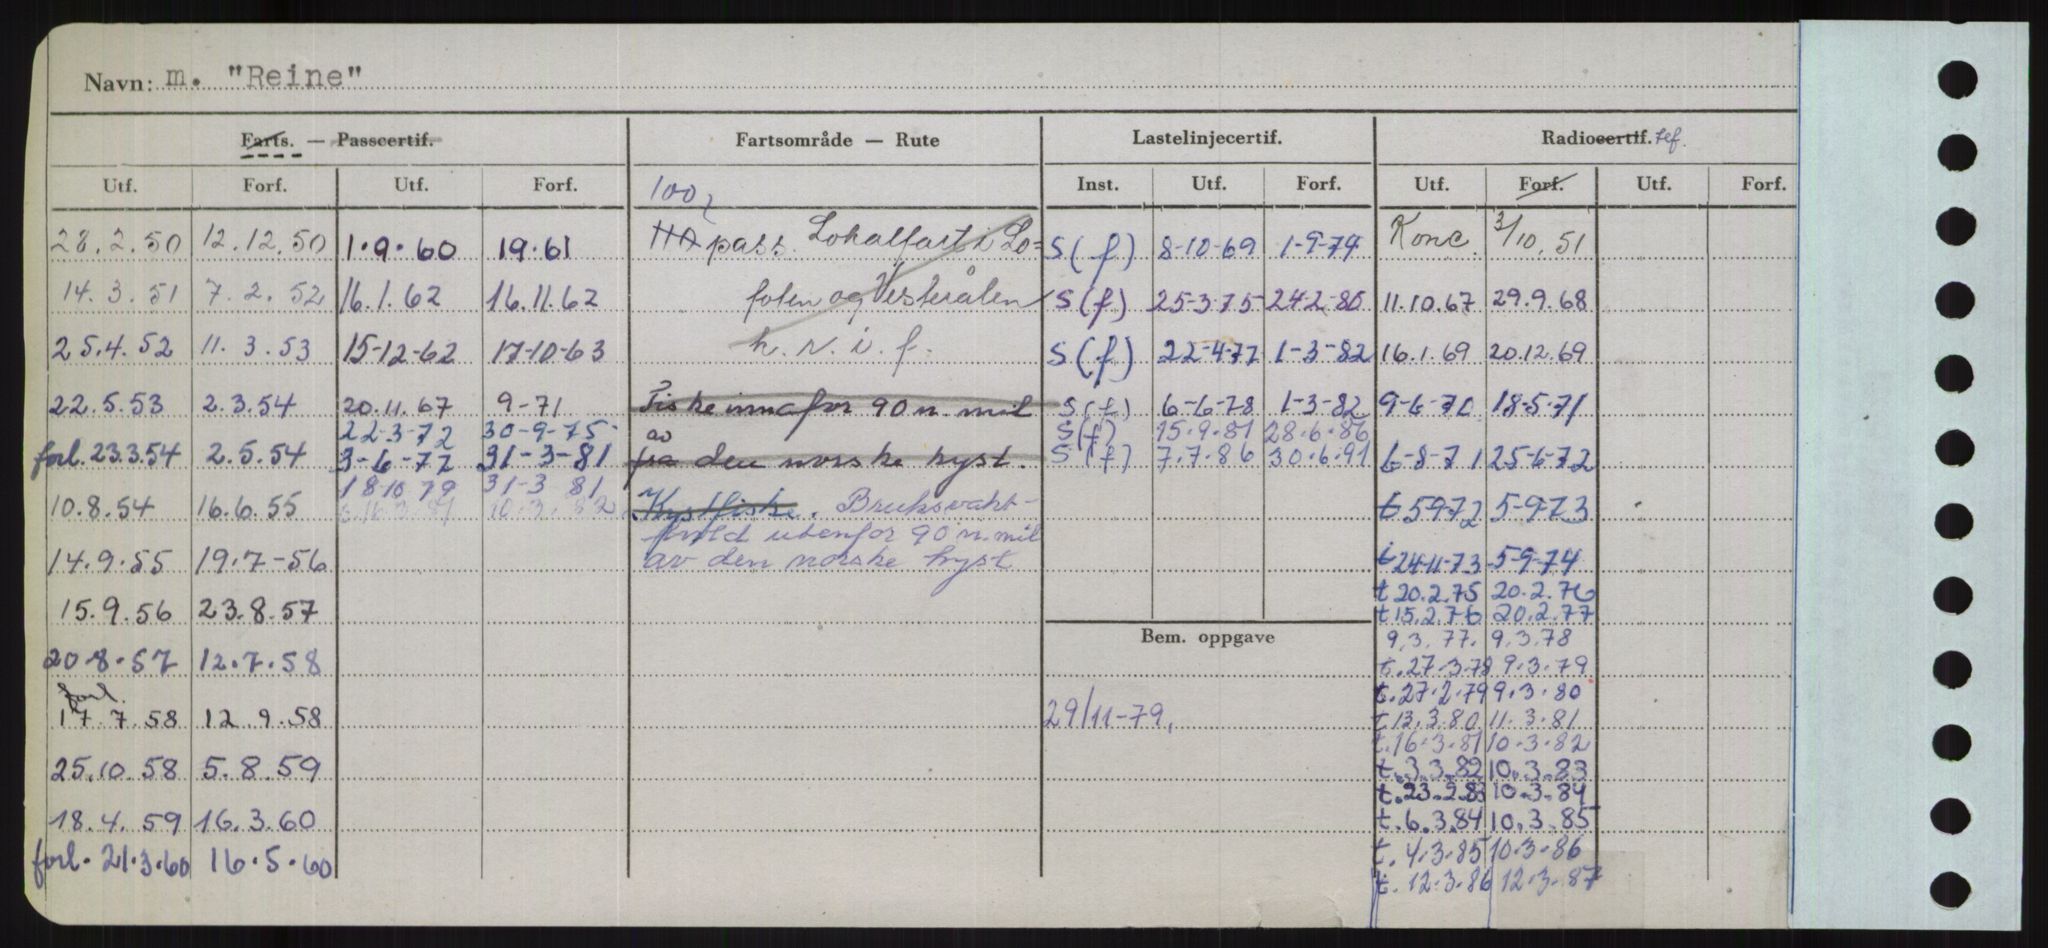 Navn: m. "Reine"
Farts. — Passcertif. Fartsområde — Rute Lastelinjecertif. Radiocertif. tef.
Utf. Forf. Utf. Forf. 100 Inst. Utf. Forf. Utf. Forf. Utf. Forf.
28.2.50 12.12.50 1.9.60 19.61 pass. Lokalfart i Lo= S(f) 8-10-69 1-9-74 Konc. 3/10.51
14.3.51 7.2.52 16.1.62 16.11.62 foten og Vesterålen S(f) 25-3-75 24-2-80 11.10.67 29.9.68
25.4.52 11.3.53 15-12-62 17-10-63 h.v.i.f. S(f) 22-4-77 1-3-82 16.1.69 20.12.69
22.5.53 2.3.54 20.11.67 9-71 Fiske innafor 90 n.mil S(f) 6-6-78 1-3-82 9-6-70 18-5-71
22-3-72 30-9-75 av S(f) 15.9.81 28.6.86
forl. 23.3.54 2.5.54 3-6-77 31-3-81 fra den norske kyst. S(f) 7.7.86 30.6.91 6-8-71 25-6-72
18-10 79 31-3 81
10.8.54 16.6.55 10.3.82 Kystfiske. Bruksvakt- t 5972 5-973
hold utenfor 90 n.mil
14.9.55 19.7-56 av den norske kyst t 24-11-73 5-9-74
t 20.2.75 20.2.76
15.9.56 23.8.57 t 15.2.76 20.2.77
Bem. oppgave 9.3.77. 9.3.78
20.8.57 12.7.58 t.27.3.78 9.3.79
forl. t.27.2.79 9.3.80
17.7.58 12.9.58 29/11-79, t.13.3.80 11.3.81
t.16.3.81 10.3.82
25.10.58 5.8.59 t.3.3.82 10.3.83
t.23.2.83 10.3.84
18.4.59 16.3.60 t.6.3.84 10.3.85
forl. 21.3.60 16.5.60 t.4.3.85 10.3.86
t.12.3.86 12.3.87